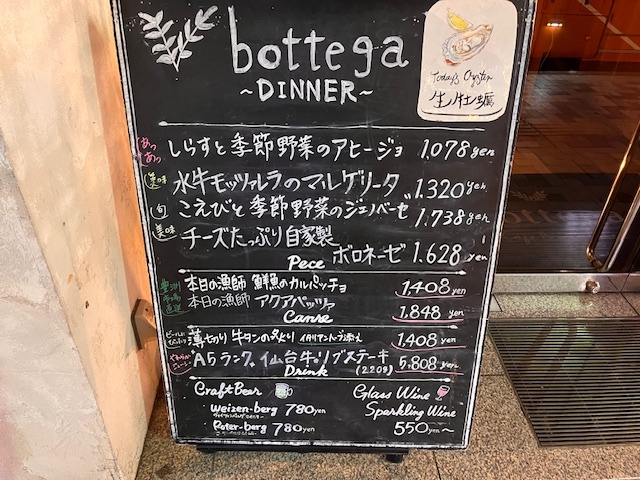 bottega
~DINNER~
Today's Oyster
生牡蠣
あつあつ しらすと季節野菜のアヒージョ 1.078 yen
美味 水牛モッツァレラのマルゲリータ 1.320 yen
旬 こえびと季節野菜のジェノベーゼ 1.738 yen
美味 チーズたっぷり自家製
ボロネーゼ 1.628 yen
Pece
豊洲市場直送 本日の漁師 鮮魚のカルパッチョ 1,408 yen
本日の漁師 アクアパッツァ 1,848 yen
Canre
薄切り牛タンの炙り イタリアンハーブ添え 1,408 yen
A5ランク 仙台牛リブステーキ (220g) 5,808 yen
Drink
Craft Bear
Weizen-berg 780yen
Roter-berg 780yen
Glass Wine
Sparkling Wine
550yen~